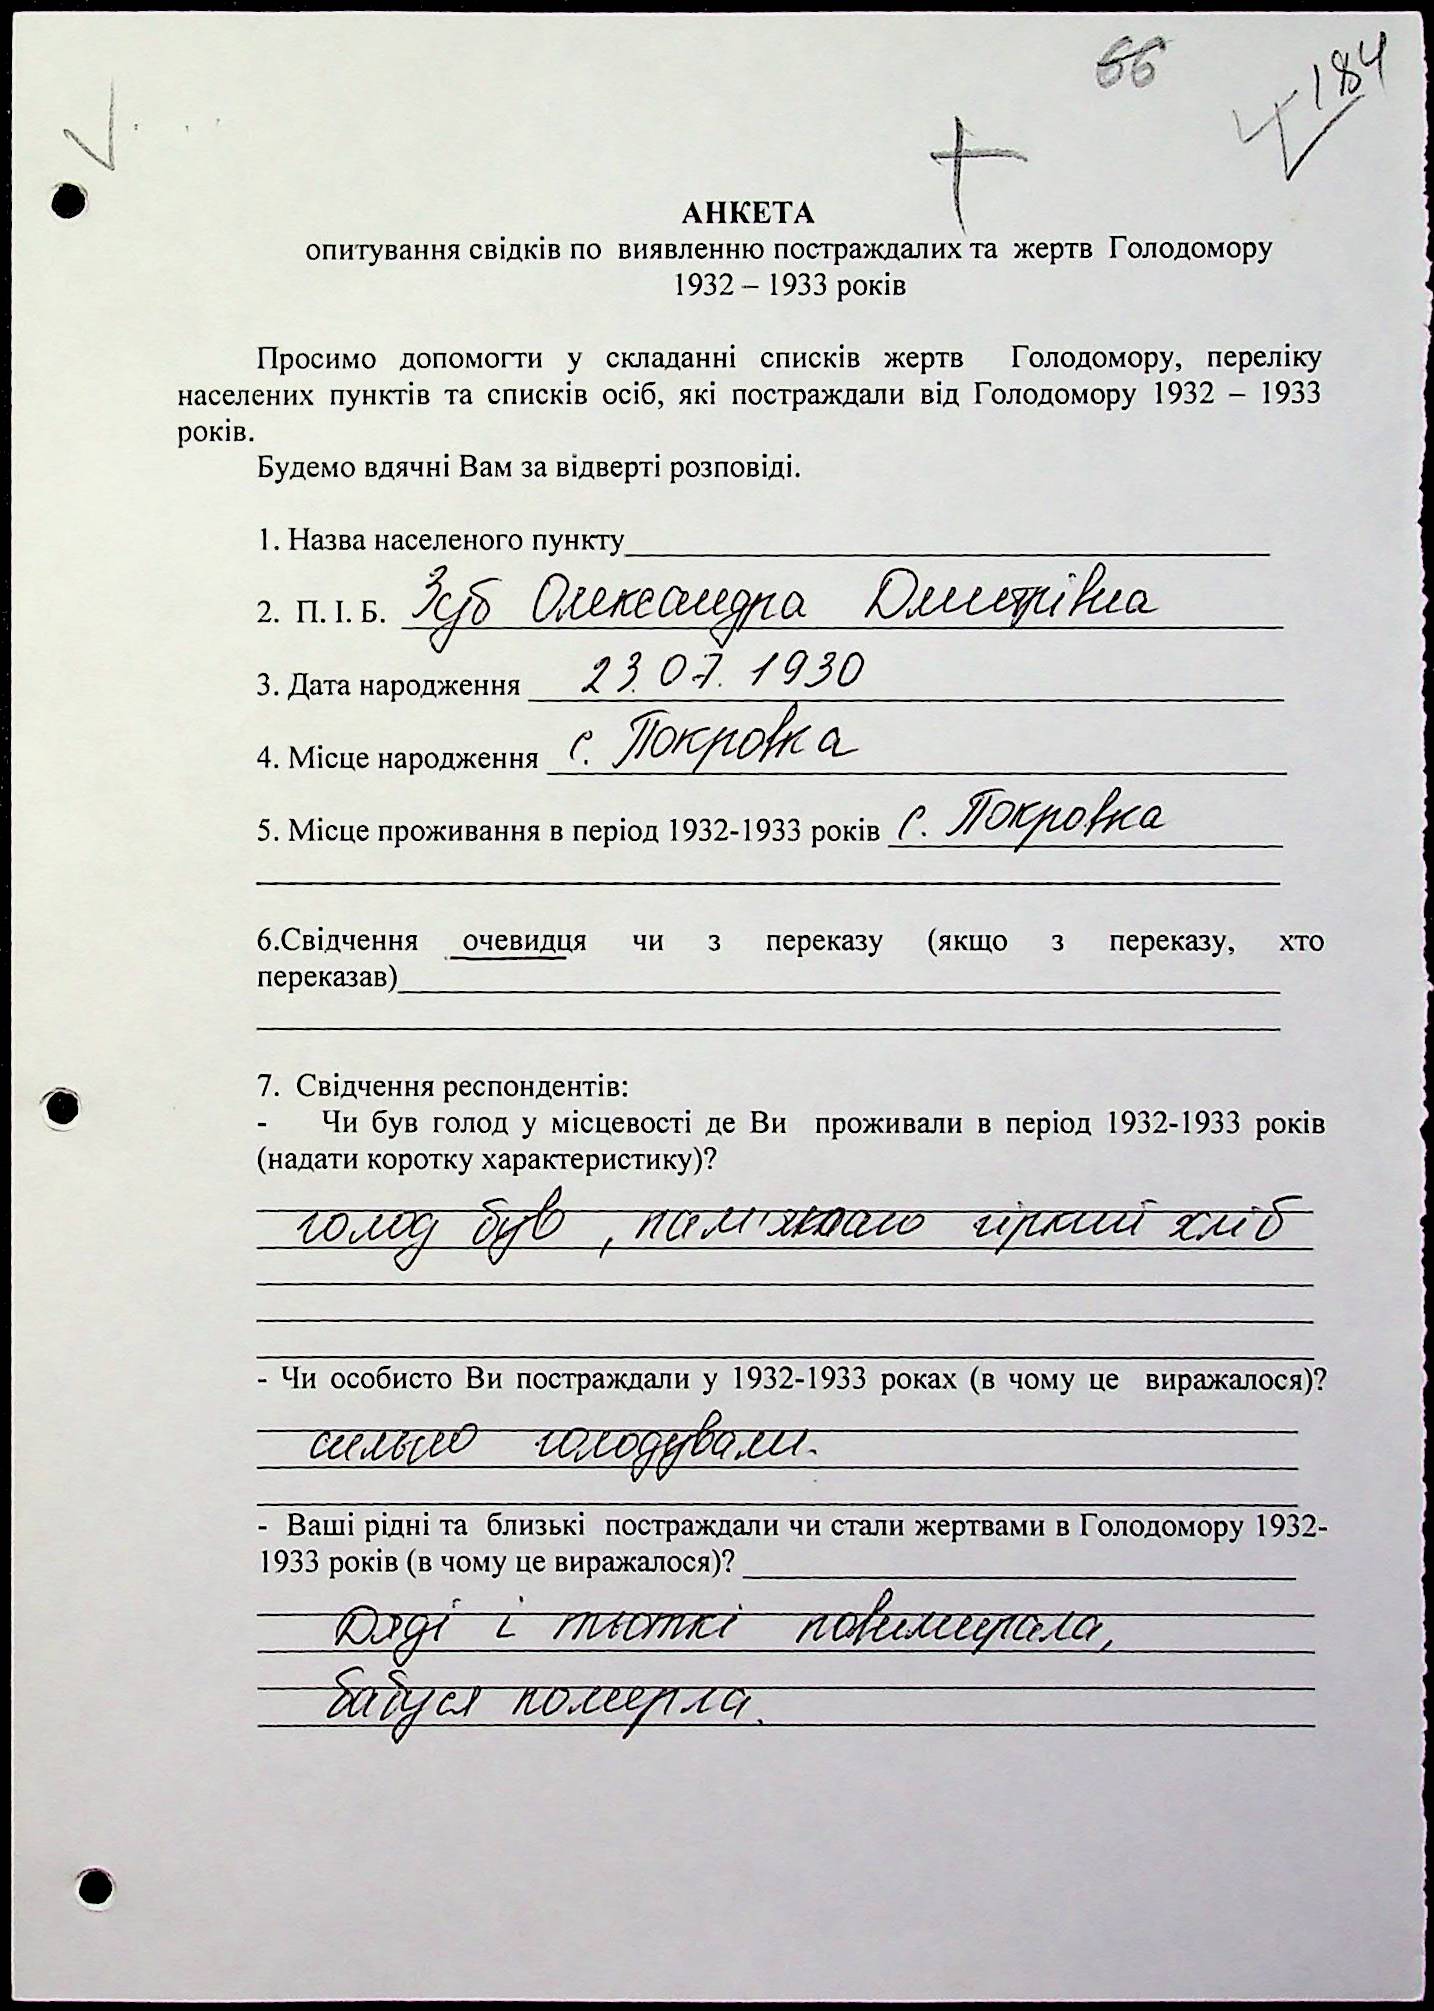 66
184
АНКЕТА
опитування свідків по виявленню постраждалих та жертв Голодомору
1932 – 1933 років
Просимо допомогти у складанні списків жертв Голодомору, переліку
населених пунктів та списків осіб, які постраждали від Голодомору 1932 – 1933
років.
Будемо вдячні Вам за відверті розповіді.
1. Назва населеного пункту
2. П. І. Б. Зуб Олександра Дмитрівна
3. Дата народження 23.07.1930
4. Місце народження с. Покровка
5. Місце проживання в період 1932-1933 років с. Покровка
6.Свідчення очевидця чи з переказу (якщо з переказу, хто
переказав)
7. Свідчення респондентів:
- Чи був голод у місцевості де Ви проживали в період 1932-1933 років
(надати коротку характеристику)?
голод був, гіркий хліб
- Чи особисто Ви постраждали у 1932-1933 роках (в чому це виражалося)?
сильно голодували.
- Ваші рідні та близькі постраждали чи стали жертвами в Голодомору 1932-
1933 років (в чому це виражалося)?
Дяді і тьоткі повимирала,
бабуся померла.